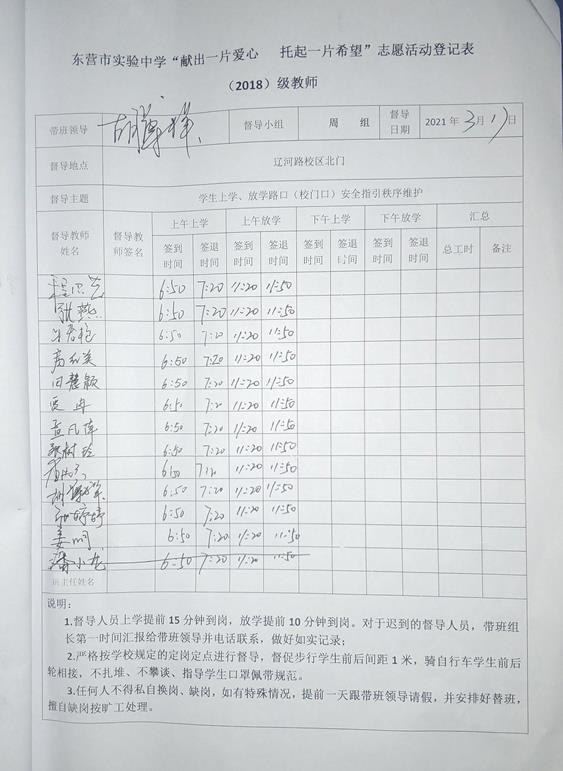 东营市实验中学“献出一片爱心 托起一片希望”志愿活动登记表
（2018）级教师
带班领导 督导小组 周 组 督导日期 2021年3月17日
督导地点 辽河路校区北门
督导主题 学生上学、放学路口（校门口）安全指引秩序维护
督导教师姓名 督导教师签名 上午上学 上午放学 下午上学 下午放学 汇总
签到时间 签退时间 签到时间 签退时间 签到时间 签退时间 签到时间 签退时间 总工时 备注
6:50 7:20 11:20 11:50
张燕 6:50 7:20 11:20 11:50
6:50 7:20 11:20 11:50
6:50 7:20 11:20 11:50
田慧颖 6:50 7:20 11:20 11:50
6:50 7:20 11:20 11:50
孟凡萍 6:50 7:20 11:20 11:50
6:50 7:20 11:20 11:50
6:50 7:20 11:20 11:50
6:50 7:20 11:20 11:50
6:50 7:20 11:20 11:50
姜明 6:50 7:20 11:20 11:50
潘小龙 6:50 7:20 11:20 11:50
班主任姓名
说明：
1.督导人员上学提前15分钟到岗，放学提前10分钟到岗。对于迟到的督导人员，带班组
长第一时间汇报给带班领导并电话联系，做好如实记录；
2.严格按学校规定的定岗定点进行督导，督促步行学生前后间距1米，骑自行车学生前后
轮相接，不扎堆、不攀谈、指导学生口罩佩带规范。
3.任何人不得私自换岗、缺岗，如有特殊情况，提前一天跟带班领导请假，并安排好替班，
擅自缺岗按旷工处理。